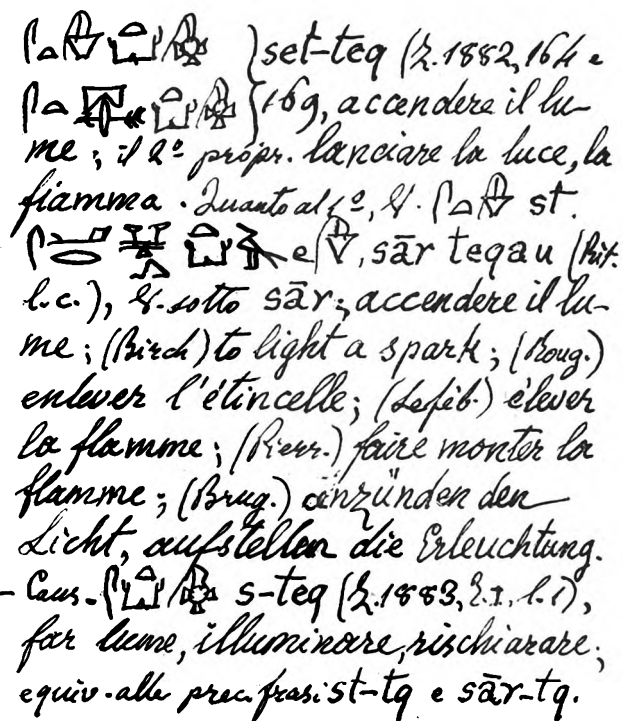 set-teq (Z. 1882, 164 e
169, accendere il lu-
me; il 2º propr. lanciare la luce, la
fiamma. Quanto al 1º, V. st.
e, sār teqau (Rit.
l.c.), V. sotto sār; accendere il lu-
me; (Birch) to light a spark; (Roug.)
enlever l'étincelle; (Lefèb.) élever
la flamme; (Pierr.) faire monter la
flamme; (Brug.) anzünden den
Licht, aufstellen die Erleuchtung.
- Caus. s-teq (Z. 1883, l. 1),
far lume, illuminare, rischiarare;
equiv. alle prec. frasi st-tq e sār-tq.